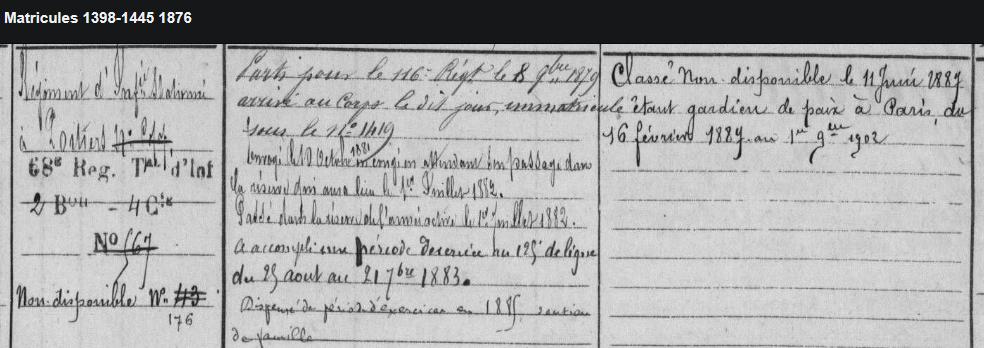 Matricules 1398-1445 1876
Régiment d'Infie Stationné
à Poitiers
68e Reg. Tal d'Inf
2 Bon - 4 Cie
No 567
Non-disponible No 43
176
Parti pour le 116e Régt le 8 9bre 1879
arrivé au Corps le dit jour, immatricule
sous le No 1419
Envoyé le Octobre 1881 en congé en attendant son passage dans
la réserve qui aura lieu le 1er Juillet 1882.
Passé dans la réserve de l'armée active le 1er Juillet 1882.
a accompli une période d'exercice au 125e de ligne
du 25 aout au 21 7bre 1883.
Dispensé de période d'exercices en 1885 soutien
de famille
Classé Non-disponible le 11 Juin 1887
étant gardien de paix à Paris, du
16 février 1887 au 1er 9bre 1902